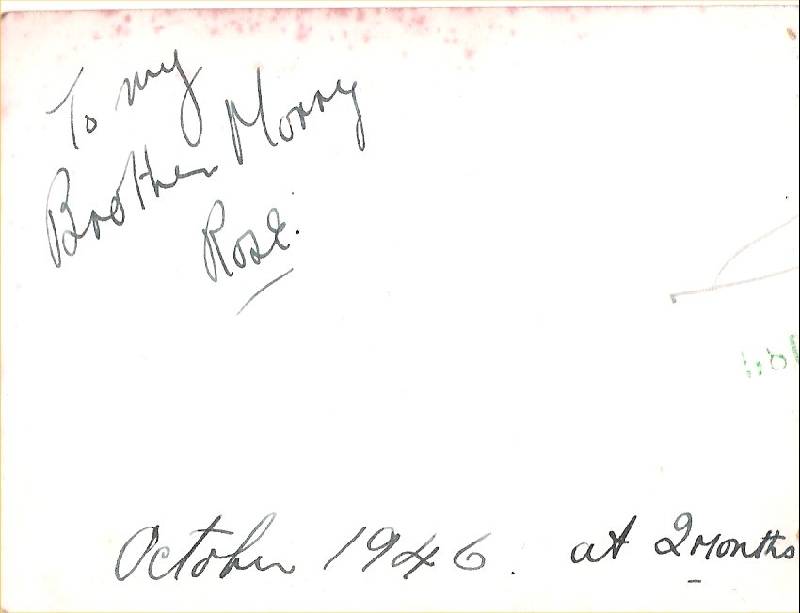 To my
Brother Morry
Rose.
October 1946. at 2 Months